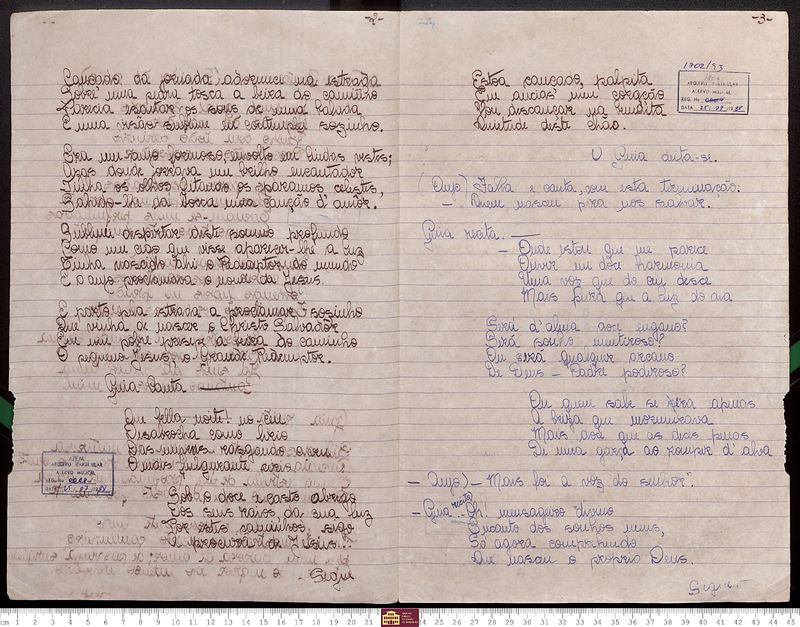 -2-
Cançado da jornada adormeci na estrada
Sobre uma pedra tosca a beira do caminho
Parecia escutar os sons de uma balada
E numa visão sublime eu contemplei sozinho.
Era um anjo formoso, envolto em lindas vestes;
Azas donde jorrava um brilho encantador
Tinha os olhos fitando os páramos celestes,
Sahindo-lhe da bocca uma canção d'amor.
Sublime despertar deste somno profundo
Como um cáos que visse aparecer-lhe a luz
Tinha nascido alli o Redemptor do mundo
E o anjo proclamava o nome de Jesus.
E parto pela estrada a proclamar sozinho
Que vinha de nascer o Christo Salvador
Em um pobre presepe a beira do caminho
O pequeno Jesus, o Grande Redemptor.
Guia - Canta
Que bella noite! no céu
Desabrocha como lirio
Das nuvens rasgando o veu
O mais fulgurante cirio
Sob o doce e casto abrigo
Dos seus raios, da sua luz
Por estes caminhos, sigo
A procura de Jesus...
Segue
-3-
1702/93
ACERVO MUSICAL
Estou cançado, palpita
Em ancias meu coração
Vou descançar na bemdita
Quietude deste chão.
O Guia deita-se.
(Anjo) Falla e canta, com esta terminação:
- Quem nasceu pra nos salvar.
Guia recita. ——
- Onde estou que me parece
Ouvir um doce harmonia
Uma voz que do ceu desce
Mais pura que a luz do dia
Será d'alma doce engano?
Será sonho mentiroso?
Ou será qualquer arcano
De Deus - Padre poderoso?
Ou quem sabe se fora apenas
A briza que murmurava
Mais doce que as doces penas
De uma garça ao romper d'alva
- Anjo) - Mas foi a voz do senhor".
- Guia recita - Oh! mensageiro divino
Encanto dos sonhos meus,
Só agora comprehendo
Que nasceu o proprio Deus.
Segue -